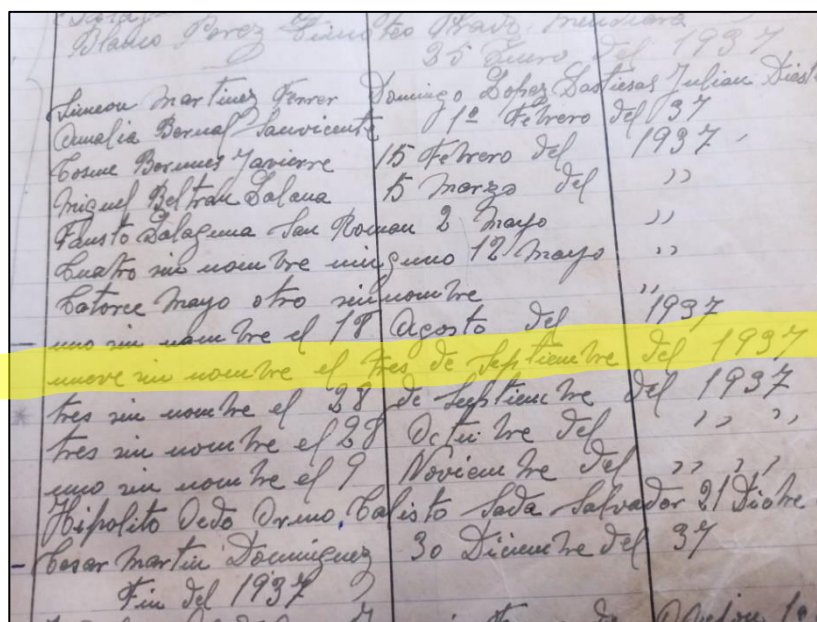 Blanco Perez Timoteo Prado, Mendiara
25 Enero del 1937
Simeon Martinez Ferrer Domingo Lopez Lastiesas Julian
Amalia Bernal Sanvicente 1º Febrero del 37
Cosme Bermes Javierre 15 Febrero del 1937
Miguel Beltran Lalana 15 Marzo del ,,
Fausto Lalaguna San Roman 2 Mayo ,,
Cuatro sin nombre ninguno 12 Mayo ,,
Catorce Mayo otro sin nombre ,,
uno sin nombre el 18 Agosto del 1937
nueve sin nombre el tres de Septiembre del 1937
tres sin nombre el 28 de Septiembre del 1937
tres sin nombre el 28 Octubre del ,, ,,
uno sin nombre el 9 Noviembre del ,, ,,
Hipolito Calisto Sada Salvador 21 Dicbre
Cesar Martin Dominguez 30 Diciembre del 37
Fin del 1937